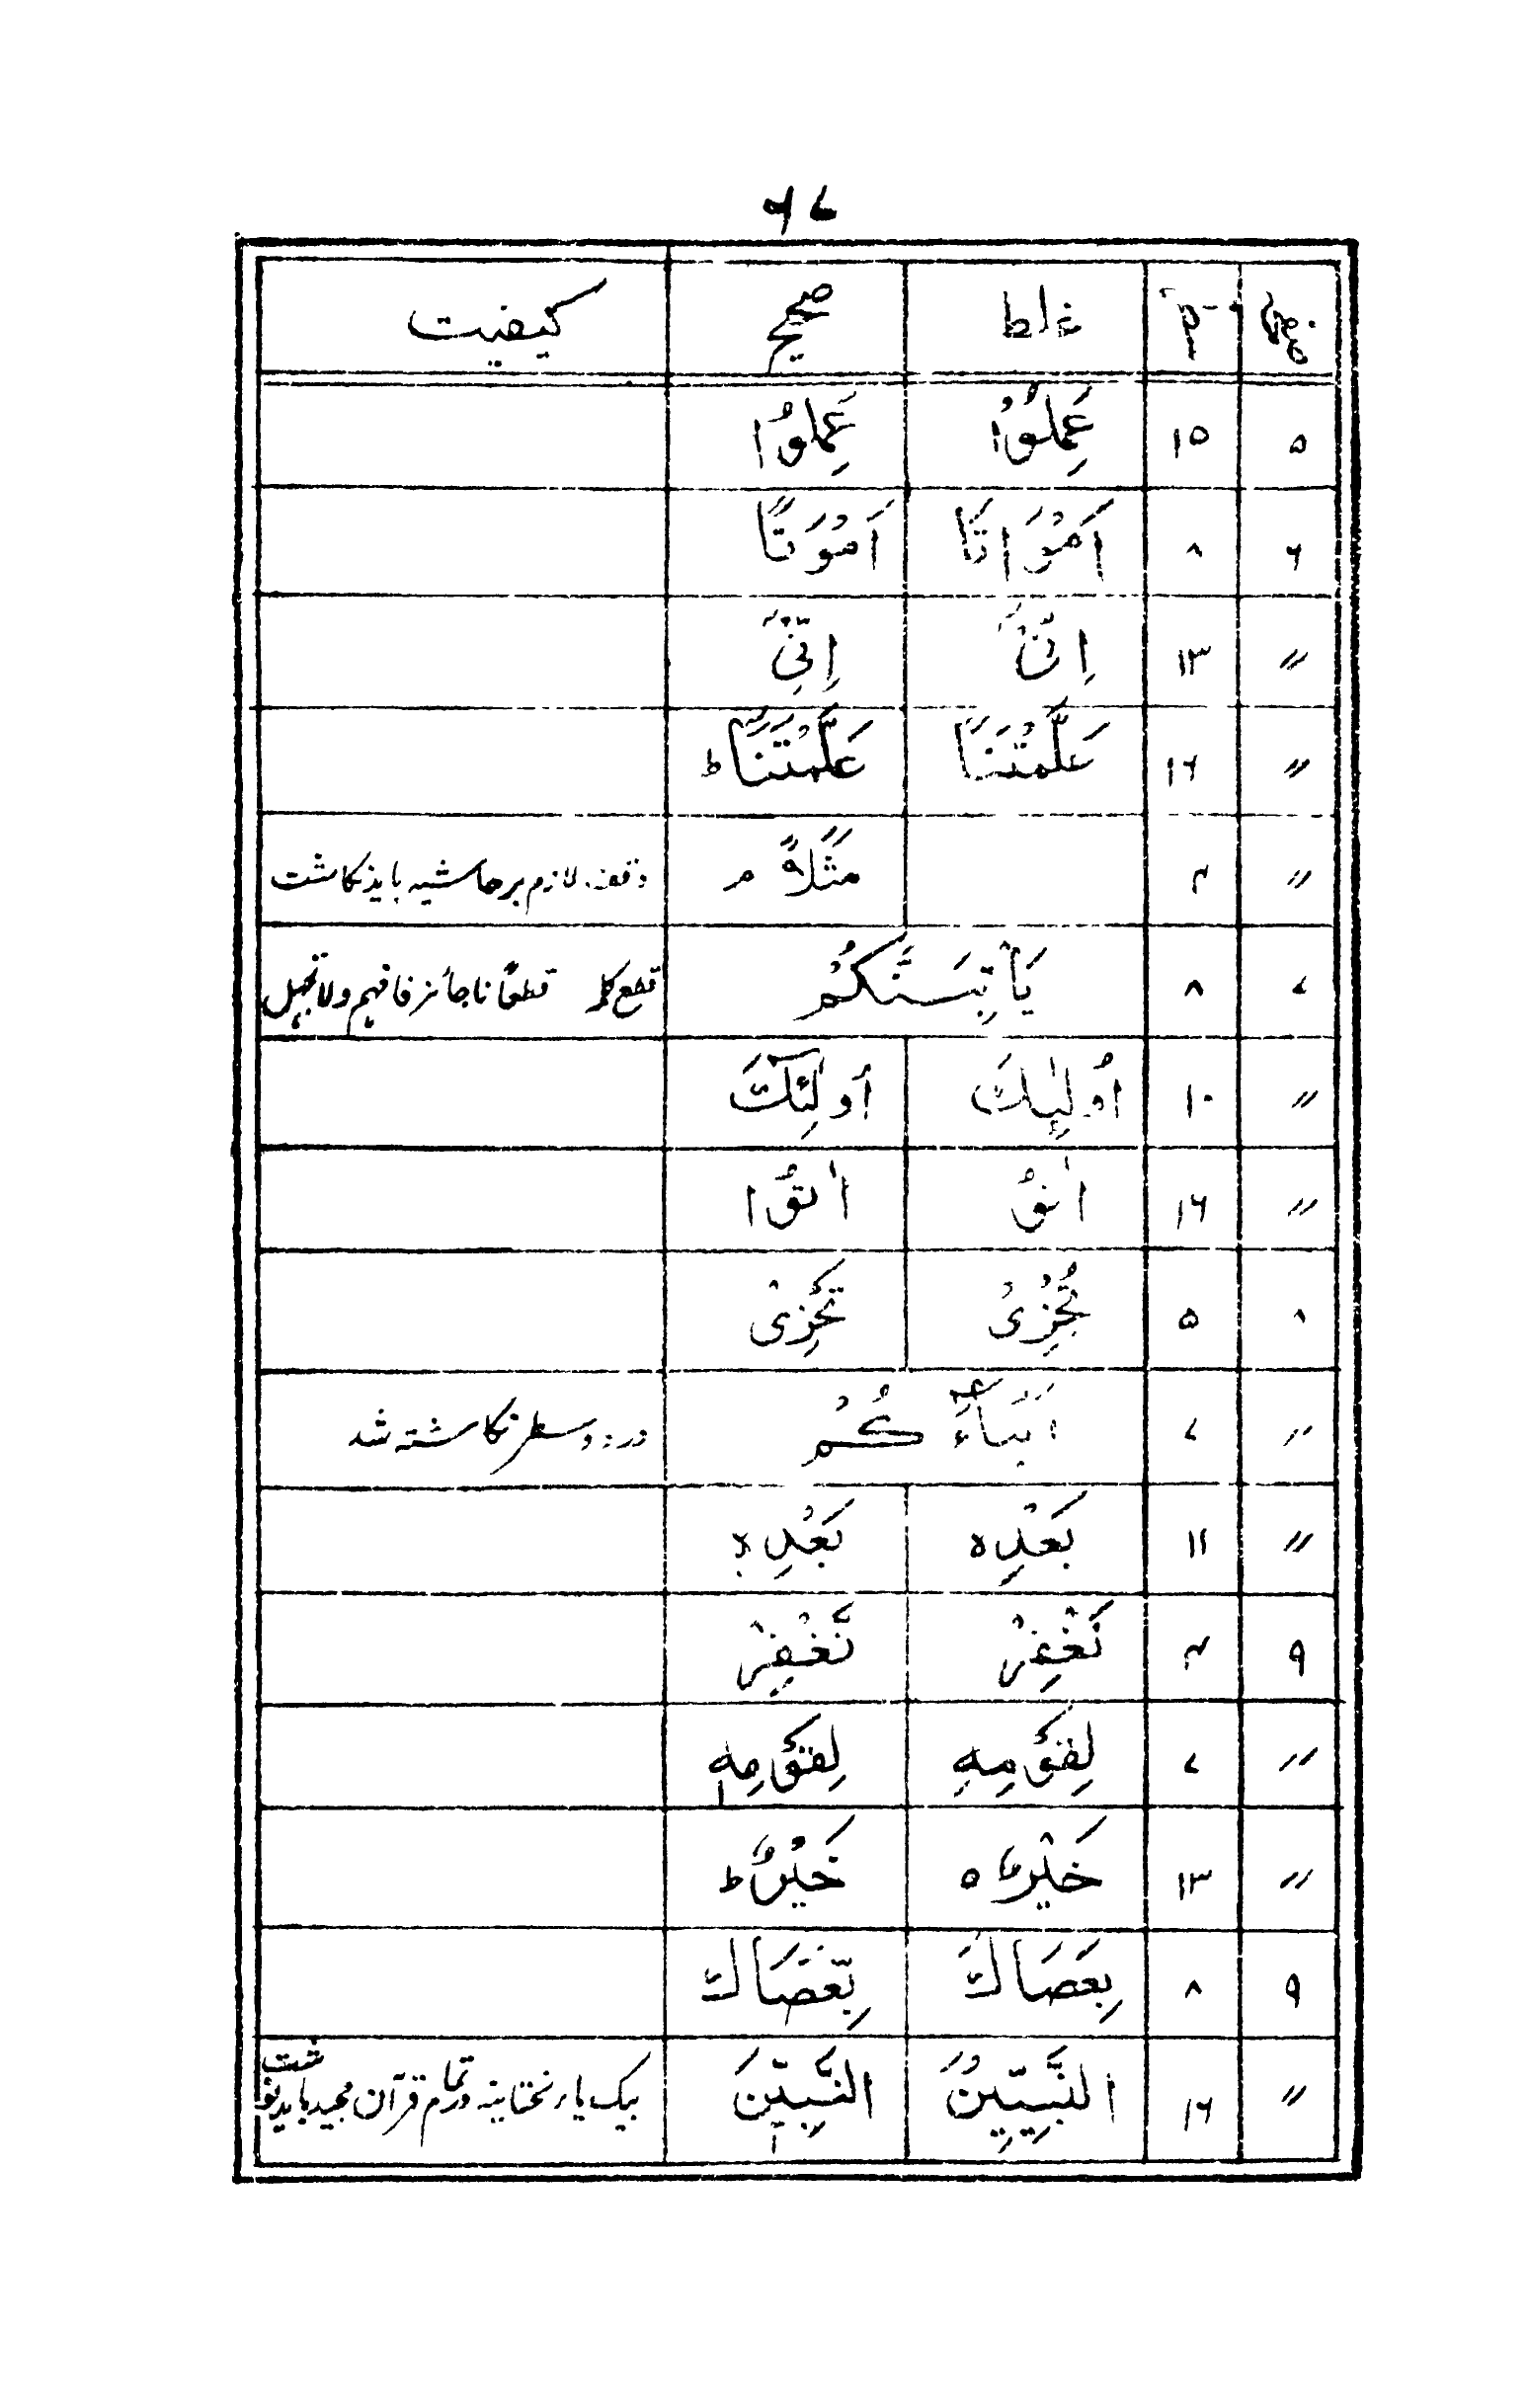 ۶۷
صفحہ سطر غلط صحیح کیفیت
۵ ۱۵ عَمِلُوْا عَمِلُوا
۶ ۸ اَمْوَاتًا اَمْوَتًا
〃 ۱۳ اِنّیْ اِنِّیْ
〃 ۱۶ عَلَّمْتَنَا عَلَّمْتَنَاؕ
〃 ۴ مَثَلًا م وقف لازم بر حاشیہ باید نگاشت
۷ ۸ يَأْتِيَنَّكُمْ قطع کلمہ قطعًا ناجائز فافہم ولا تجہل
〃 ۱۰ اُولٰٓئِكَ أُولٰٓئِكَ
〃 ۱۶ اتقُ اتقُوا
۸ ۵ تُجْزِیْ تَجْزِیْ
〃 ۷ اَبْنَآءَ كُمْ در دو سطر نگاشتہ شد
〃 ۱۱ بَعْدِہ بَعْدِہٖ
۹ ۴ نَغْفِرْ نَّغْفِرْ
〃 ۷ لِقَوْمِهِ لِقَوْمِهٖ
〃 ۱۳ خَیْرٌ ہ خَیْرٌ ط
۹ ۸ بِعَصَاكَ بِّعَصَاكَ
〃 ۱۶ النَّبِيّٖيْنَ النَّبِيّٖنَ بیک یاء تحتانیہ در تمام قرآن مجید باید نوشت